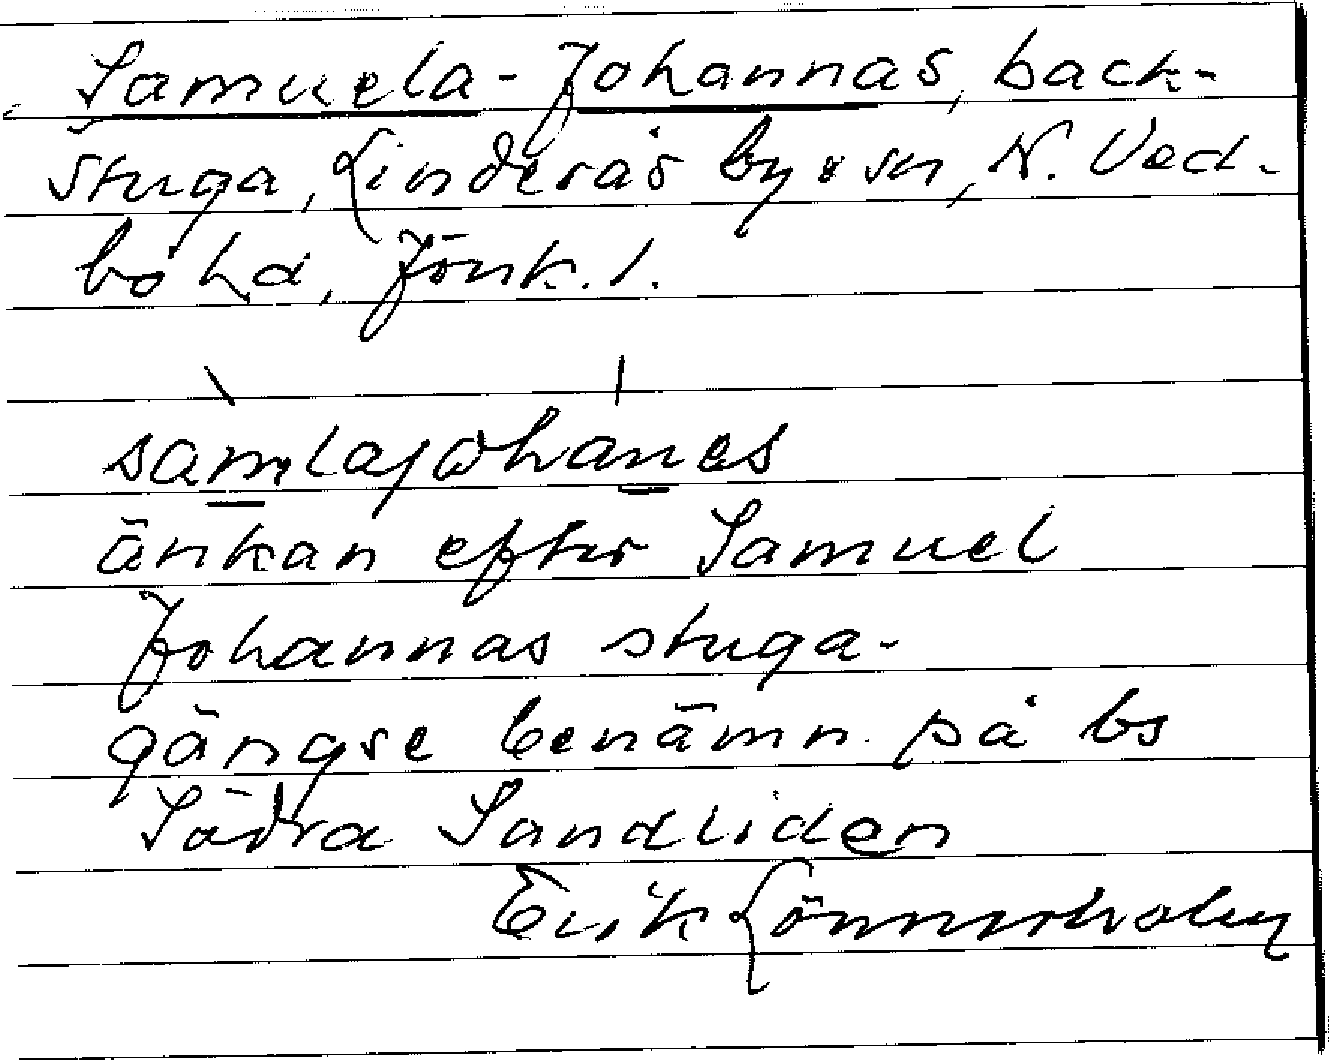 Samuela-Johannas, back-
stuga, Linderås by o sn, N. Ved-
bo hd, Jönk. l.
samlajωhanas
änkan efter Samuel
Johannas stuga-
gängse benämn. på bs
Södra Sandliden
Erik Lönnerholm